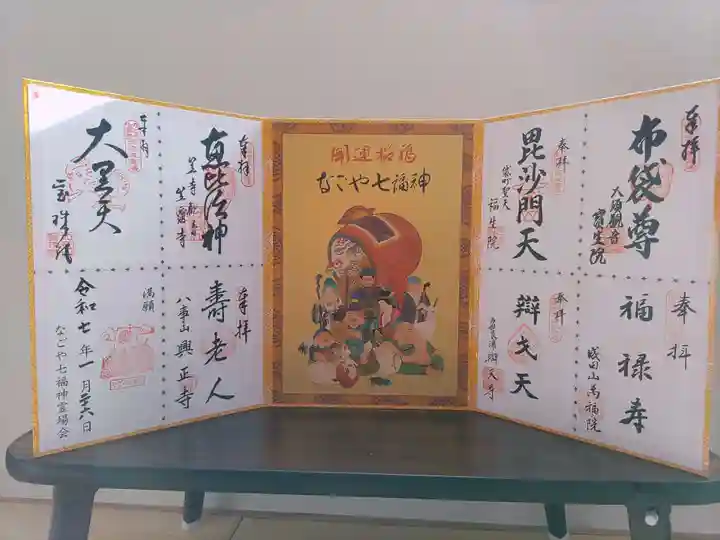 奉拝
布袋尊
大須観音
寶生院
奉拝
毘沙門天
袋町聖天
福生院
奉拝
福禄寿
成田山萬福院
奉拝
辯才天
辨天寺
開運招福
なごや七福神
奉拝
恵比須神
笠寺観音
笠覆寺
大黒天
奉拝
壽老人
八事山興正寺
満願
令和七年一月二十六日
なごや七福神霊場会